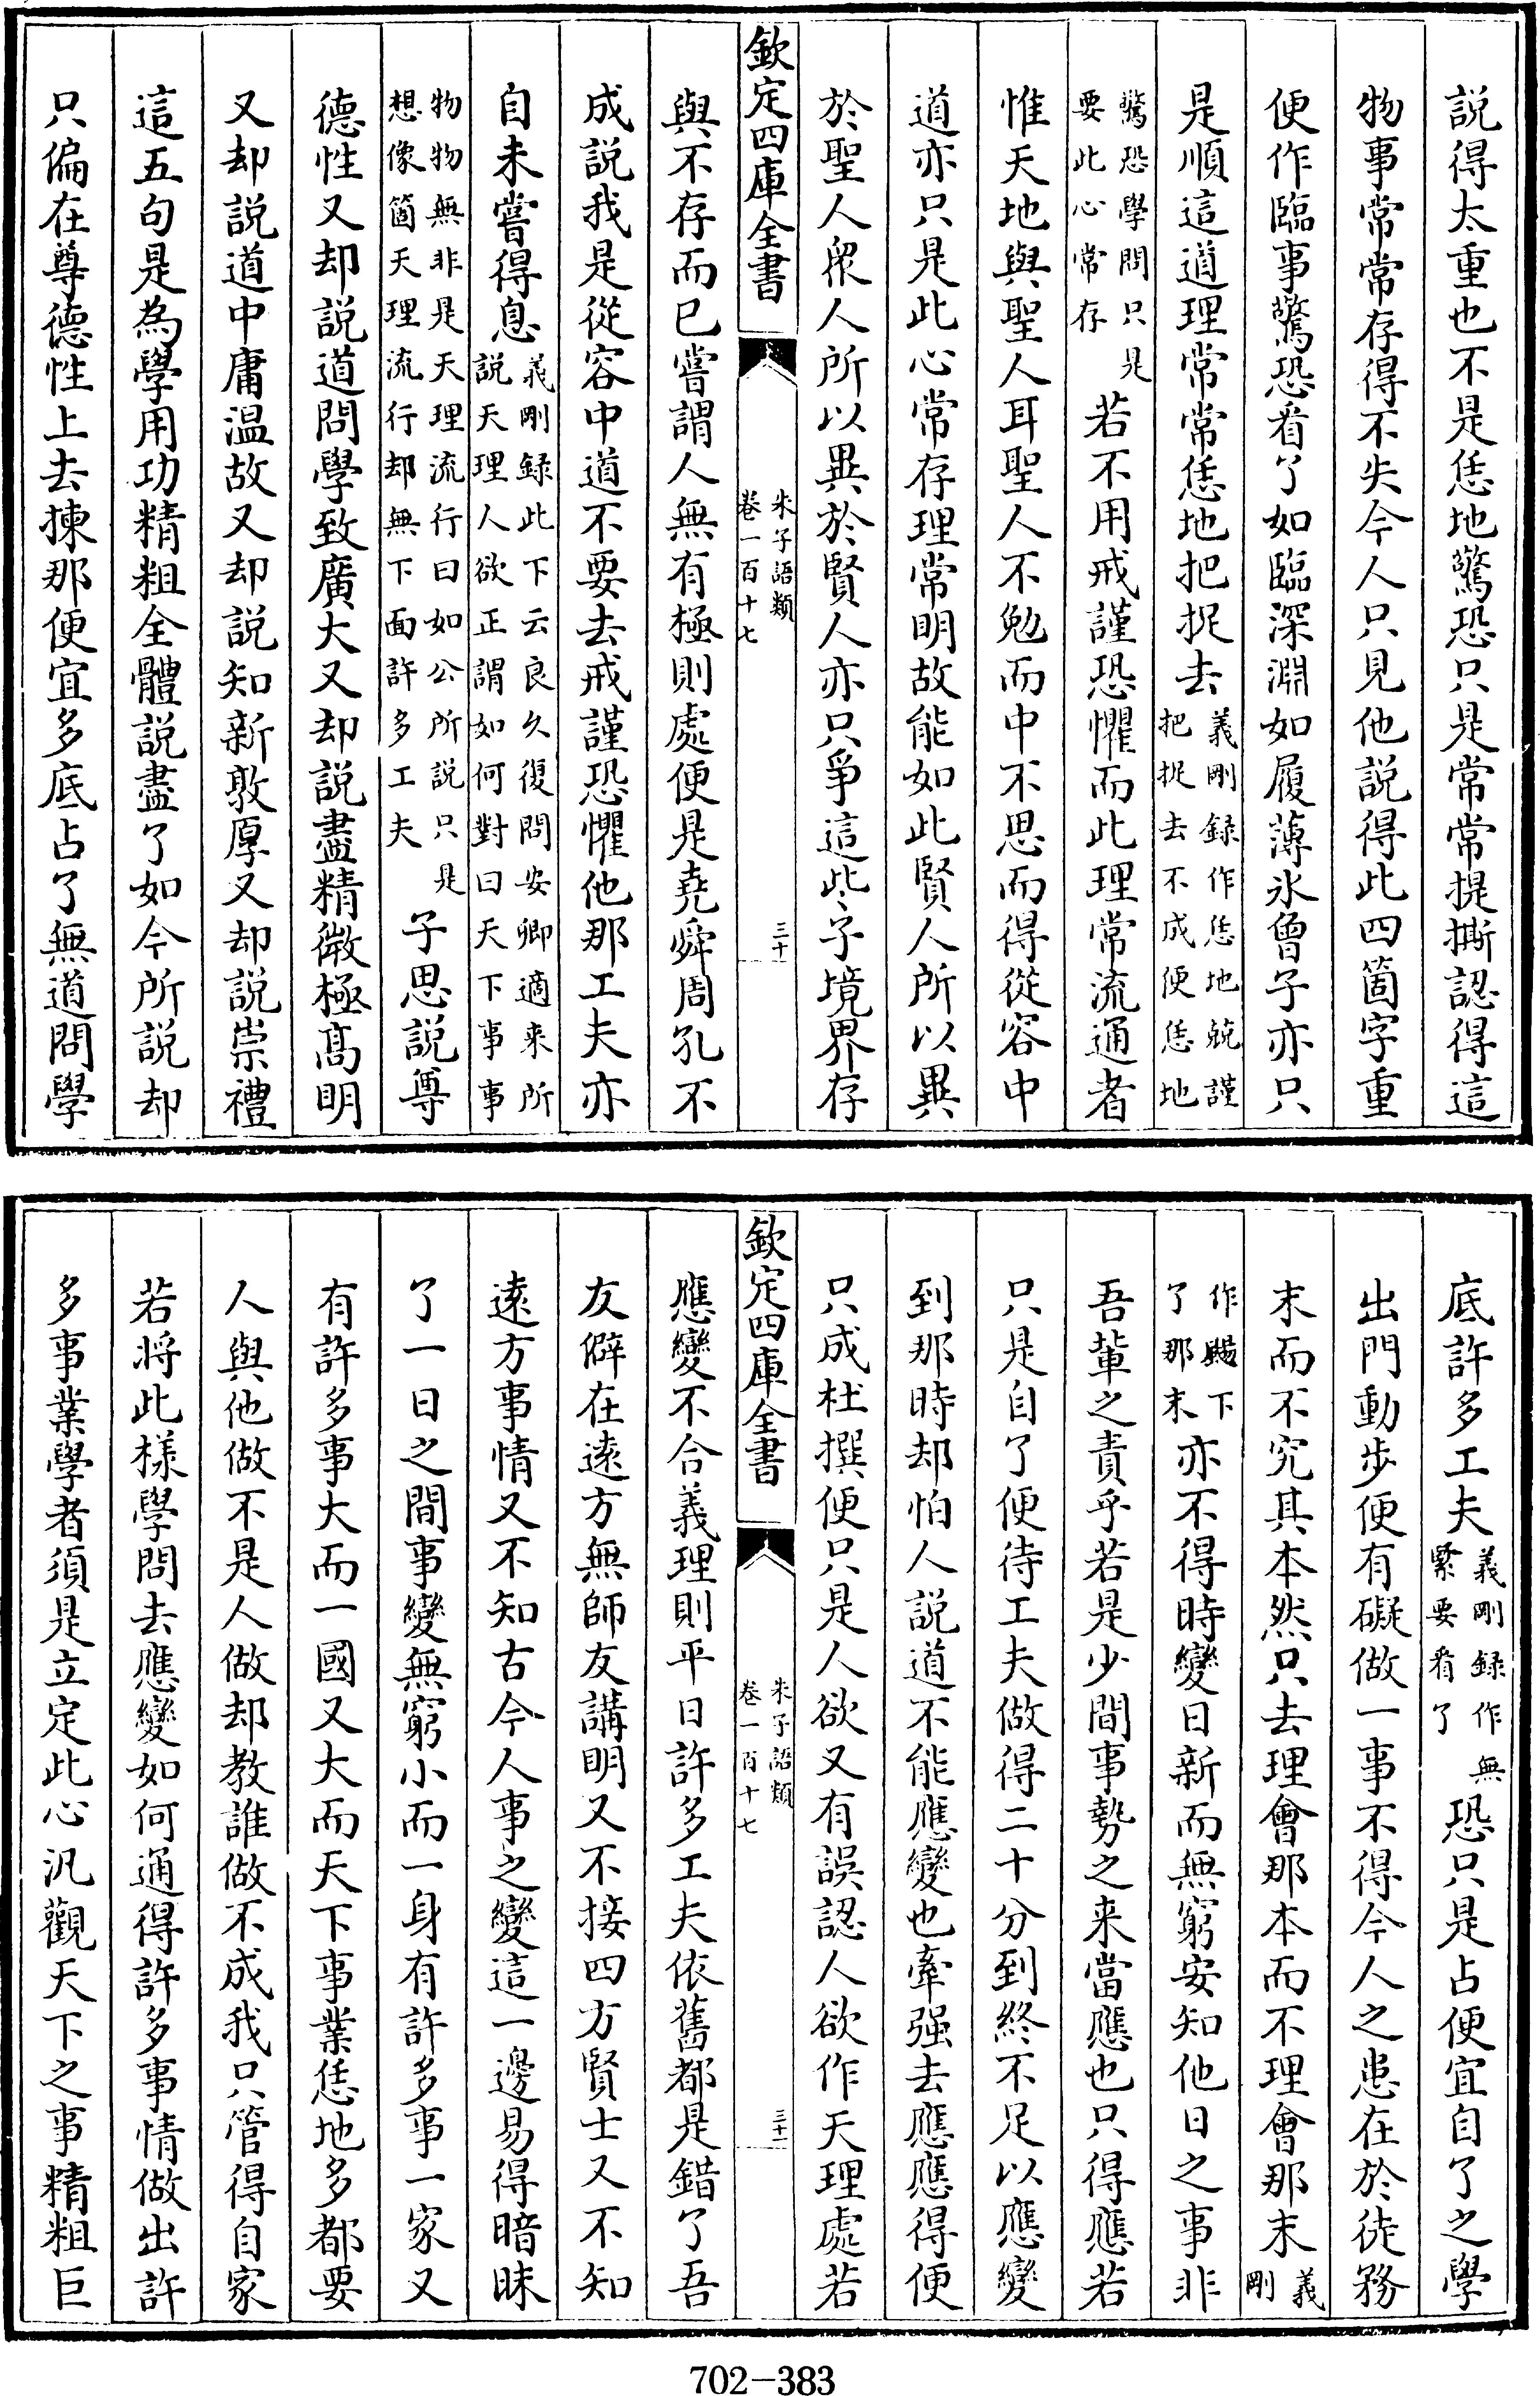 說得太重也不是恁地驚恐只是常常提撕認得這
物事常常存得不失今人只見他說得此四箇字重
便作臨事驚恐看了如臨深淵如履薄氷曾子亦只
是順這道理常常恁地把捉去義剛録作恁地兢謹把捉去不成便恁地
驚恐學問只是要此心常存若不用戒謹恐懼而此理常流通者
惟天地與聖人耳聖人不勉而中不思而得從容中
道亦只是此心常存理常明故能如此賢人所以異
於聖人衆人所以異於賢人亦只爭這些子境界存
欽定四庫全書
朱子語類
卷一百十七
三十
與不存而已嘗謂人無有極則處便是堯舜周孔不
成說我是從容中道不要去戒謹恐懼他那工夫亦
自未嘗得息義剛録此下云良久復問安卿適来所說天理人欲正謂如何對曰天下事事
物物無非是天理流行曰如公所說只是想像箇天理流行却無下面許多工夫子思說尊
德性又却說道問學致廣大又却說盡精微極髙明
又却說道中庸温故又却說知新敦厚又却說崇禮
這五句是為學用功精粗全體說盡了如今所說却
只偏在尊德性上去揀那便宜多底占了無道問學
底許多工夫義剛録作無緊要看了恐只是占便宜自了之學
出門動步便有礙做一事不得今人之患在於徒務
末而不究其本然只去理會那本而不理會那末義剛
作颺下了那末亦不得時變日新而無窮安知他日之事非
吾輩之責乎若是少間事勢之来當應也只得應若
只是自了便待工夫做得二十分到終不足以應變
到那時却怕人說道不能應變也牽强去應應得便
只成杜撰便只是人欲又有誤認人欲作天理處若
欽定四庫全書
朱子語類
卷一百十七
三十一
應變不合義理則平日許多工夫依舊都是錯了吾
友僻在逺方無師友講明又不接四方賢士又不知
逺方事情又不知古今人事之變這一邊易得暗昧
了一日之間事變無窮小而一身有許多事一家又
有許多事大而一國又大而天下事業恁地多都要
人與他做不是人做却教誰做不成我只管得自家
若將此様學問去應變如何通得許多事情做出許
多事業學者須是立定此心汎觀天下之事精粗巨
702-383